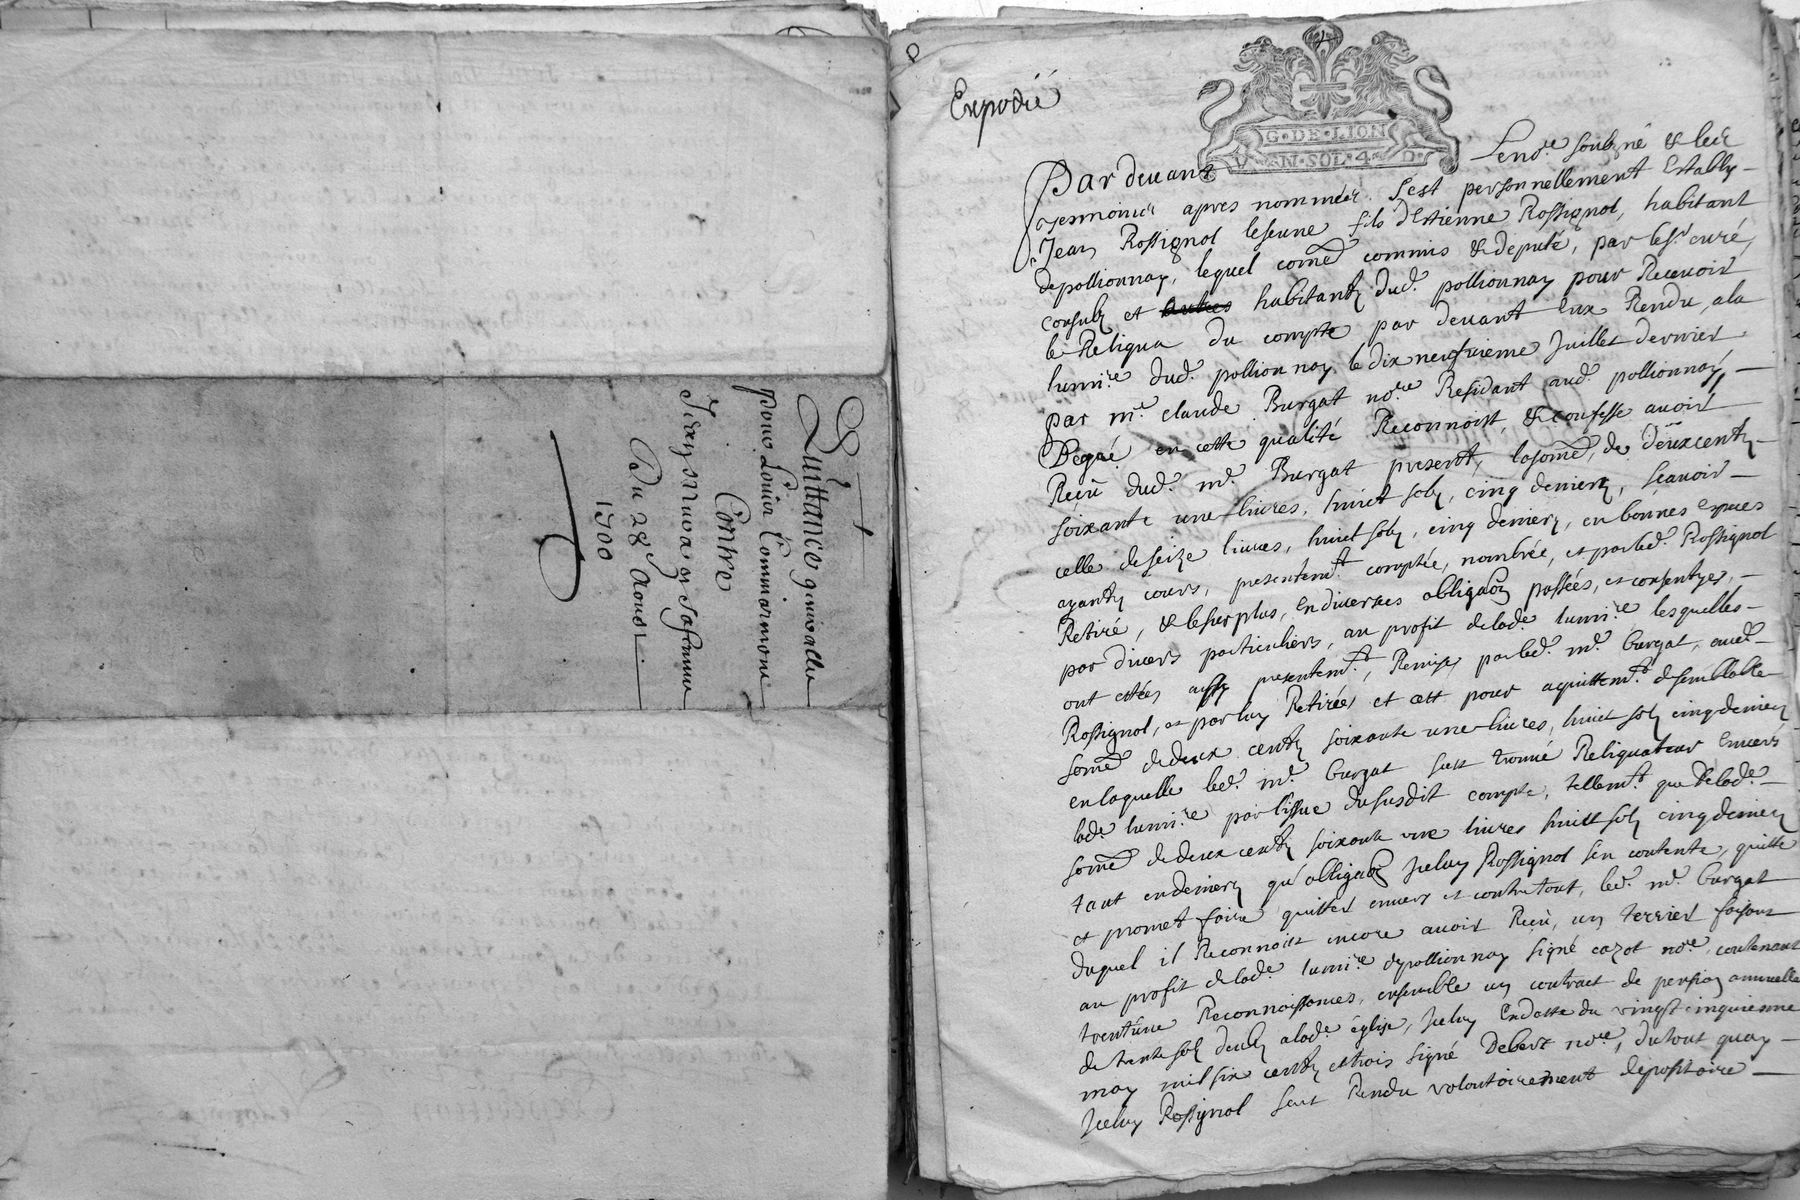 Quittance generalle
pour Louis Commarmond
Contre
Jean
et sa femme
Du 28 Aoust
1700
Expedié
G·DE·LION
V·N·SOL·4·D·
Par devant Le no.re soubz.né & les
tesmoins apres nommés s'est personnellement Estably
Jean Rossignol le Jeune fils d'Estienne Rossignol, habitant
de pollionnay, lequel comē commis & deputé, par le s.r curé,
consulz et autres habitantz dud. pollionnay pour Recevoir
le Reliqua du compte par devant Eux Rendu, a la
lumi.re dud. pollionnay le dix neufvieme Juillet dernier
par m.e claude Burgat no.re Residant aud. pollionnay,
De gré en cette qualité Reconnoist, & confesse avoir
Reçeu dud. m.e Burgat present, la somē, de deux centz
soixante une livres, huict solz, cinq deniers, sçavoir
celle de seize livres, huict solz, cinq deniers, en bonnes especes
ayantz cours, presentem.t comptée, nombrée, et par led. Rossignol
Retiré, & le surplus, En diverses obligāōns passées, et consenties,
par divers particuliers, au profit de lad.e lumi.re lesquelles
ont estées aussy presentem.t, Remises par led. m.e Burgat, aud.
Rossignol, et par luy Retirées et cest pour acquittem.t de semblable
somē de deux centz soixante une livres, huict solz cinq deniers
en laquelle led. m.e Burgat s'est trouvé Reliquateur Envers
lad.e lumi.re par l'issue du susdit compte, tellem.t que de lad.e
somē de deux centz soixante une livres huict solz cinq deniers
tant en deniers qu'obligāōns Iceluy Rossignol s'en contente, quitte
et promet faire quitter envers et contre tout, led. m.e Burgat
duquel il Reconnoist encore avoir Reçu, un terrier faisant
au profit de lad.e lumi.re de pollionnay signé cazot no.re contenant
trent'une Reconnoissances, ensemble un contract de pension annuelle
de trente solz deubz a lad.e église, Iceluy En datte du vingt cinquiesme
may mil six centz et trois signé Debert no.re, du tout quoy
Iceluy Rossignol s'est Rendu volontairement depositaire